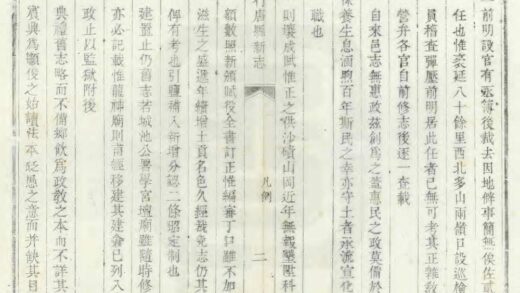 一前明設官有丞簿後裁去因地僻事簡無俟佐貳
任也惟袤延八十餘里西北多山兩嶺口設巡檢
員稽查彈壓前明居此任者已無可考其正雜教
營弁各官自前修志後逐一查載
自來邑志無惠政茲創爲之蓋惠民之政莫備於
保養生息涵煦百年斯民之幸亦守土者承流宣化
職也
行唐縣新志
凡例
二
則壤成賦惟正之供沙磧山岡近年無報墾陞科
額數照新頒賦役全書訂正惟編審丁口雖不加
滋生之盛遞年續增土貢名色久經裁免志仍其
俾有考也引鹽積入新增分認二條遵定制也
建置止仍舊志若城池公署學宮壇廟雖隨時修
亦必記載惟龍神廟則商經移建其建倉已列入
政止以監獄附後
典禮舊志略而不備鄉飲爲政教之本而不詳其
賓興爲顯後之始讀法本 愚之意而并缺其目